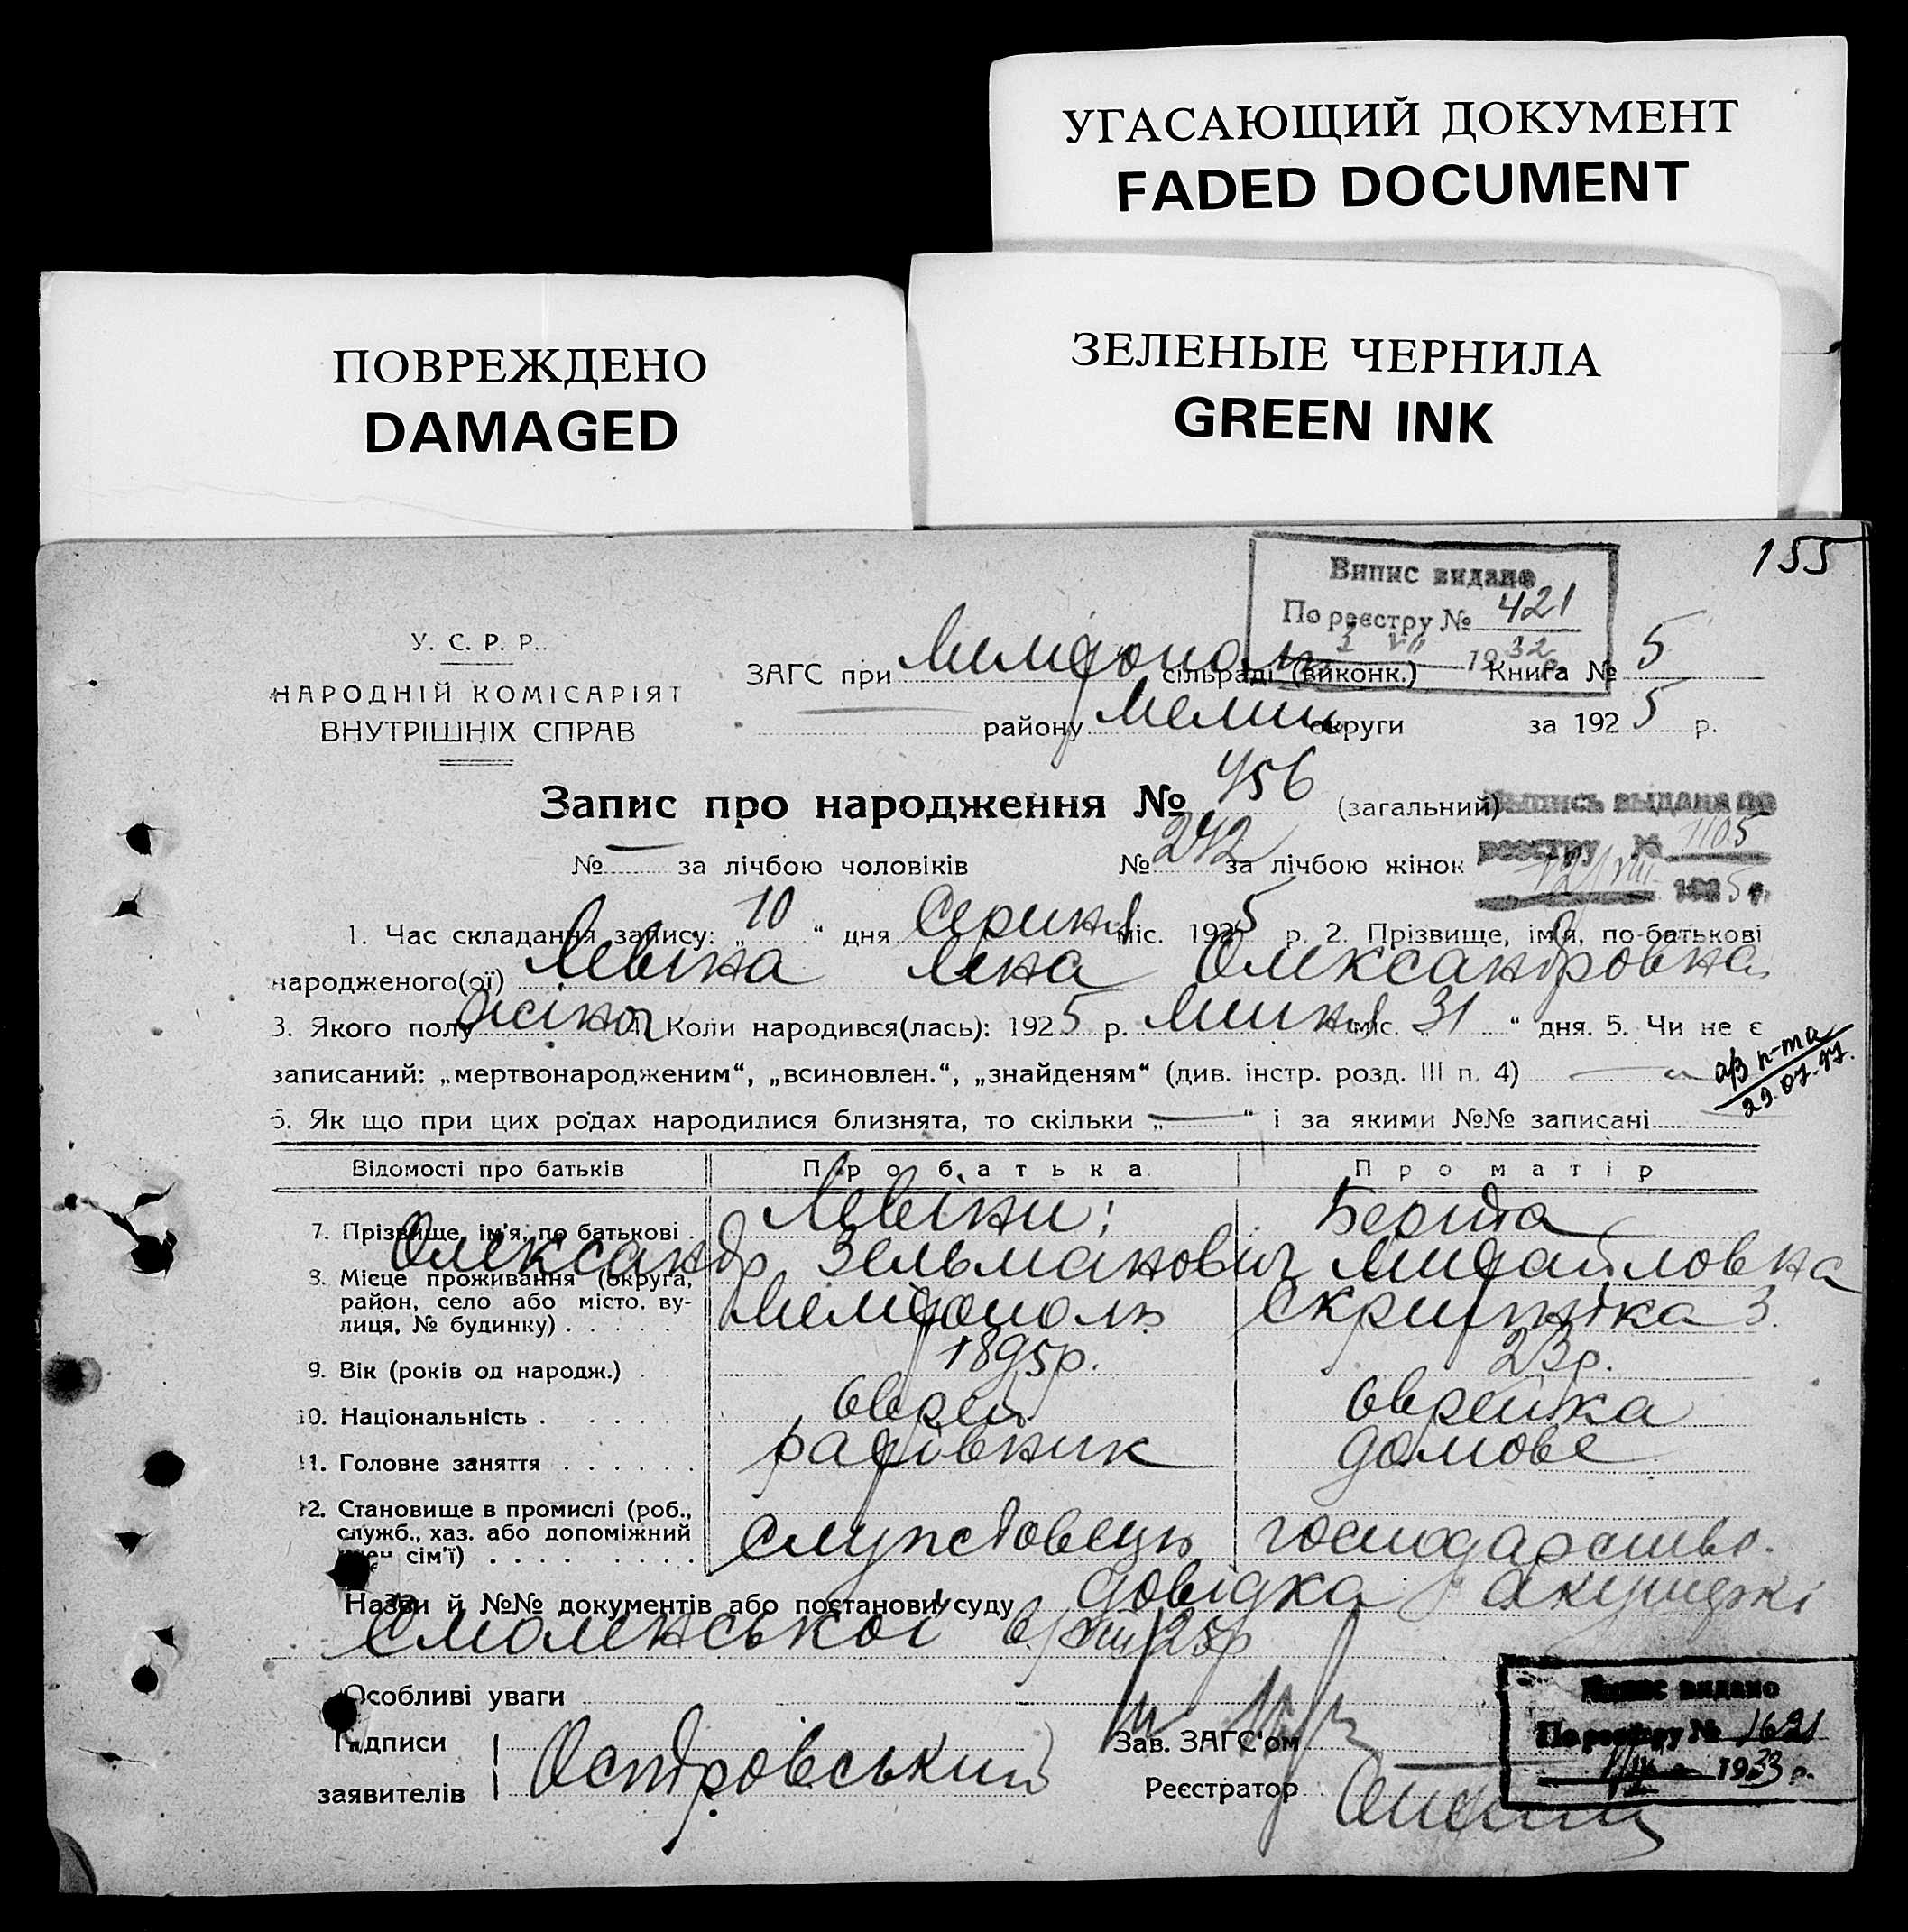 УГАСАЮЩИЙ ДОКУМЕНТ
FADED DOCUMENT
ПОВРЕЖДЕНО
DAMAGED
ЗЕЛЕНЫЕ ЧЕРНИЛА
GREEN INK
155
Випис видано
По реєстру № 421
1932
У. С. Р. Р.
НАРОДНІЙ КОМІСАРІЯТ
ВНУТРІШНІХ СПРАВ
ЗАГС при сільраді (виконк.) Книга № 5
району Мелит округи за 1925 р.
Запис про народження № 456 (загальний)
Выпись выдана по
реестру № 1105
№ — за лічбою чоловіків № 242 за лічбою жінок
12/VIII 1925 г.
1. Час складання запису: „10“ дня Серпня міс. 1925 р. 2. Прізвище, ім'я, по-батькові
народженого(ої) Левіна Лена Олександровна
3. Якого полу жіноч 4. Коли народився(лась): 1925 р. Липня міс. 31 “ дня. 5. Чи не є
записаний: „мертвонародженим“, „всиновлен.“, „знайденям“ (див. інстр. розд. III п. 4) —
6. Як що при цих родах народилися близнята, то скільки „—“ і за якими №№ записані
Відомості про батьків Про батька Про матір
7. Прізвище, ім'я, по батькові . Левіни: Берта
Олександр Зельманович Михайловна
8. Місце проживання (округа,
район, село або місто, ву-
лиця, № будинку) . . . . . Мелітополь Скрипніка 3.
9. Вік (років од народж.) . . 1895р. 23р.
10. Національність . . . . . еврей еврейка
11. Головне заняття . . . . . . рахівник домове
12. Становище в промислі (роб.,
служб., хаз. або допоміжний
член сім'ї) . . . . . . . . . службовець господарство.
Назви й №№ документів або постанови суду довідка акушерки
Смоленської 6/VIII 25р
Особливі уваги
Підписи
заявителів Островський
Зав. ЗАГС'ом
Реєстратор
Випис видано
По реєстру № 1621
1933 р.